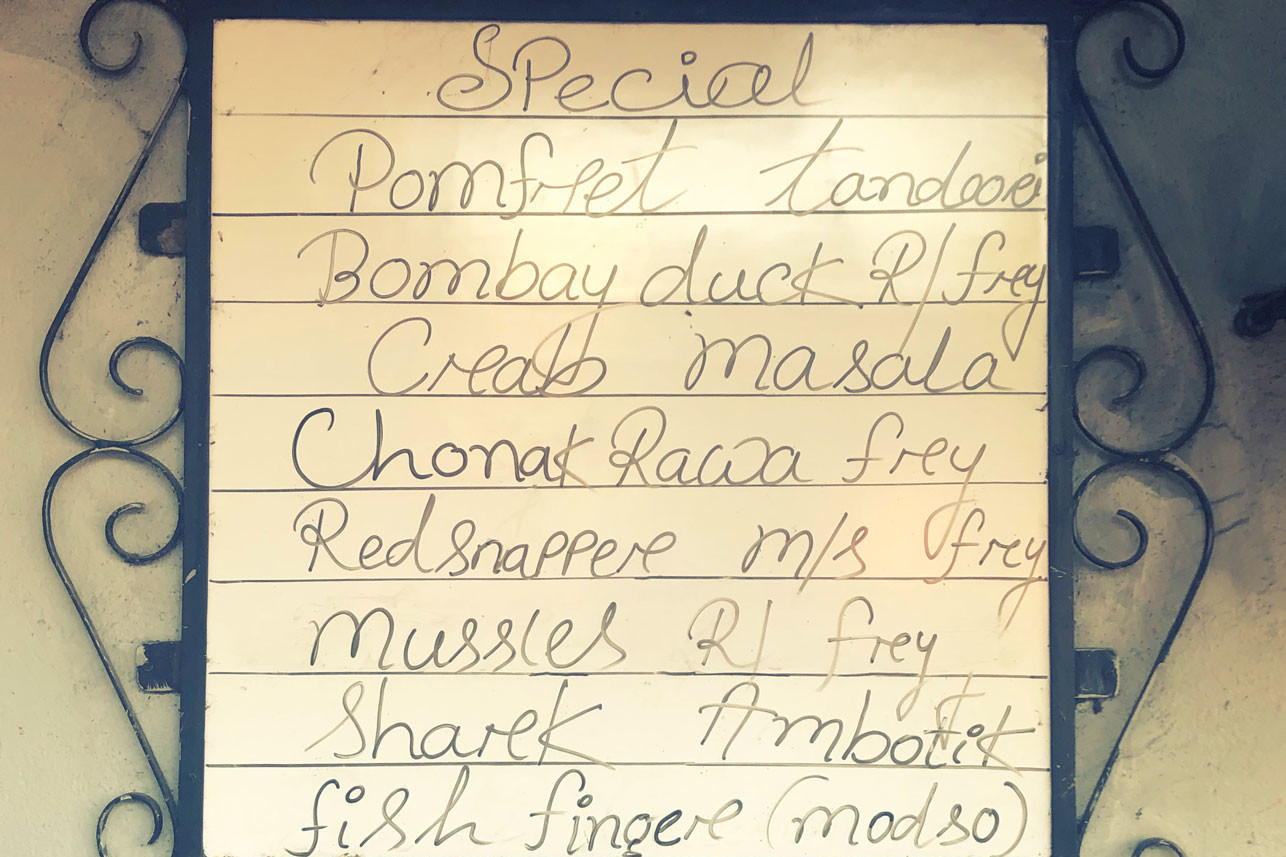 Special
Pomfret tandoori
Bombay duck R/frey
Creab masala
Chonak Rawa frey
Redsnappere m/s frey
Mussles R/ frey
Sharek Ambotik
fish fingere (modso)